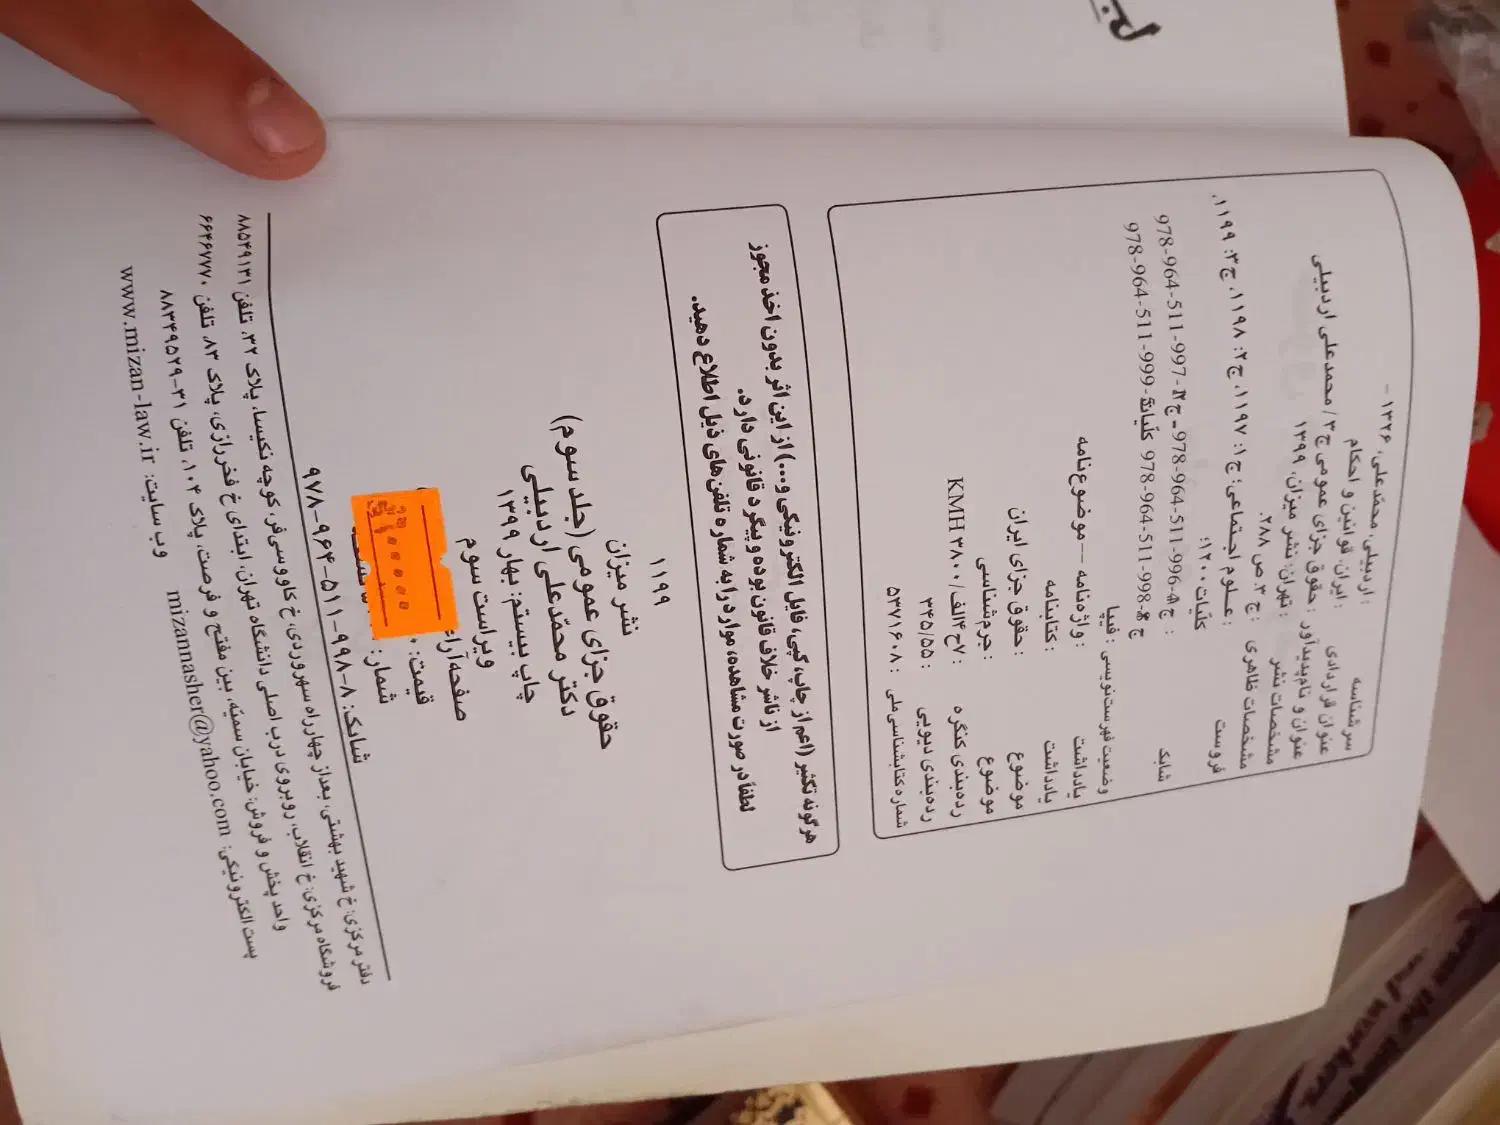 سرشناسه : اردبیلی، محمّدعلی، ۱۳۲۶ -
عنوان قراردادی : ایران. قوانین و احکام
عنوان و نام‌پدیدآور : حقوق جزای عمومی ج ۳/ محمدعلی اردبیلی
مشخصات نشر : تهران: نشر میزان، ۱۳۹۹
مشخصات ظاهری : ج ۳. ص ۲۸۸.
فروست : علوم اجتماعی؛ ج۱: ۱۱۹۷، ج۲: ۱۱۹۸، ج۳: ۱۱۹۹،
کلیّات: ۱۲۰۰
شابک : 978-964-511-997-ج 978-964-511-996-
978-964-511-999-کلّیات 978-964-511-998-ج
وضعیت فهرست‌نویسی : فیپا
یادداشت : واژه‌نامه — موضوع‌نامه
یادداشت : کتابنامه
موضوع : حقوق جزای ایران
موضوع : جرم‌شناسی
رده‌بندی کنگره : KMH ۳۸۰۰/الف۴ح۷
رده‌بندی دیویی : ۳۴۵/۵۵
شماره کتابشناسی ملی : ۵۳۷۱۶۰۸
هرگونه تکثیر (اعم از چاپ، کپی، فایل الکترونیکی و...) از این اثر بدون اخذ مجوز
از ناشر خلاف قانون بوده و پیگرد قانونی دارد.
لطفاً در صورت مشاهده، موارد را به شماره تلفن‌های ذیل اطلاع دهید.
۱۱۹۹
نشر میزان
حقوق جزای عمومی (جلد سوم)
دکتر محمّدعلی اردبیلی
چاپ بیستم: بهار ۱۳۹۹
ویراست سوم
صفحه‌آرا
قیمت:
شمار:
شابک: ۸-۹۹۸-۵۱۱-۹۶۴-۹۷۸
دفتر مرکزی: خ شهید بهشتی، بعد از چهارراه سهروردی، خ کاووسی‌فر، کوچه نکیسا، پلاک ۳۲، تلفن ۸۸۵۴۹۱۳۱
فروشگاه مرکزی: خ انقلاب، روبروی درب اصلی دانشگاه تهران، ابتدای خ فخررازی، پلاک ۸۳، تلفن ۶۶۴۶۷۷۷۰
واحد پخش و فروش: خیابان سمیّه، بین مفتح و فرصت، پلاک ۱۰۴، تلفن ۳۱-۸۸۳۴۹۵۲۹
پست الکترونیکی: mizannasher@yahoo.com وب سایت: www.mizan-law.ir